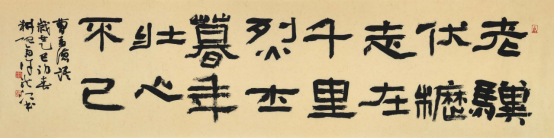 老驥
伏櫪
志在
千里
烈士
暮年
壮心
不已
曹孟德語